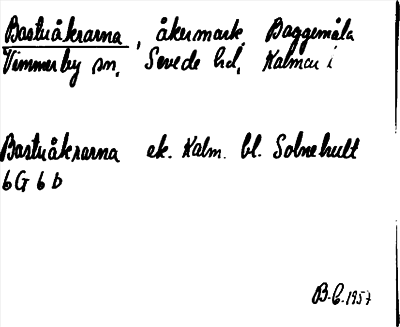 Bastuåkrarna, åkermark, Baggemåla
Vimmerby sn, Sevede hd, Kalmar i
Bastuåkrarna ek. Kalm. bl. Solnehult
6G 6b
B.C. 1957